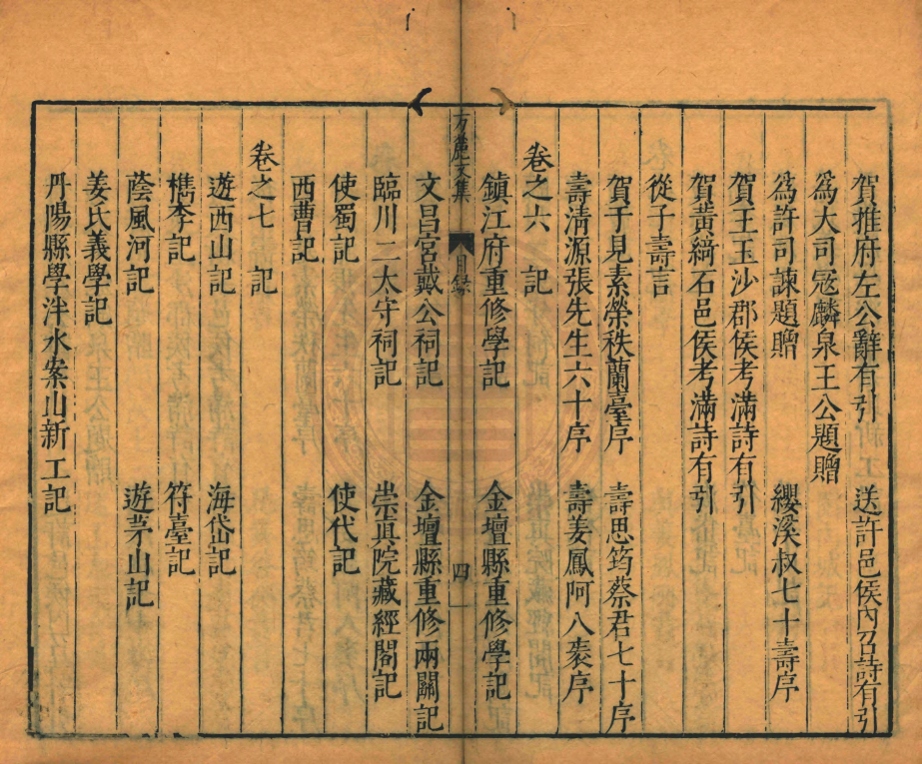 賀推府左公辭有引　送許邑侯內召詩有引
為大司冦麟泉王公題贈
為許司諫題贈　纓溪叔七十壽序
賀王玉沙郡侯考滿詩有引
賀黃縞石邑侯考滿詩有引
從子壽言
賀于見素榮秩蘭臺序　壽思筠蔡君七十序
壽清源張先生六十序　壽姜鳳阿八袠序
卷之六　記
鎮江府重修學記　金壇縣重修學記
方麓文集　目錄　四
文昌宮戴公祠記　金壇縣重修兩關記
臨川二太守祠記　崇眞院藏經閣記
使蜀記　使代記
西曹記
卷之七　記
遊西山記　海岱記
檇李記　符臺記
蔭風河記　遊茅山記
姜氏義學記
丹陽縣學泮水案山新工記